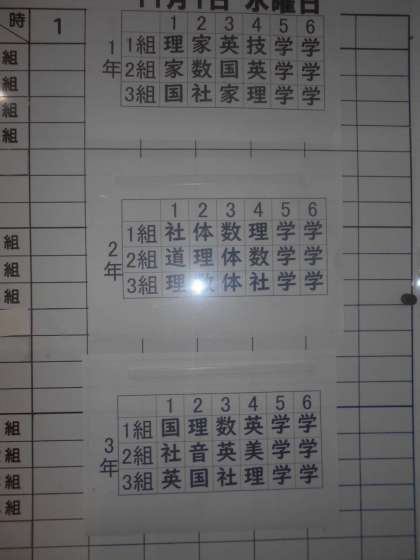 11月1日 水曜日
時 1
組
組
組
組
1 2 3 4 5 6
1年
1組 理 家 英 技 学 学
2組 家 数 国 英 学 学
3組 国 社 家 理 学 学
組
組
組
1 2 3 4 5 6
2年
1組 社 体 数 理 学 学
2組 道 理 体 数 学 学
3組 理 体 社 学 学
組
組
組
組
1 2 3 4 5 6
3年
1組 国 理 数 英 学 学
2組 社 音 英 美 学 学
3組 英 国 社 理 学 学